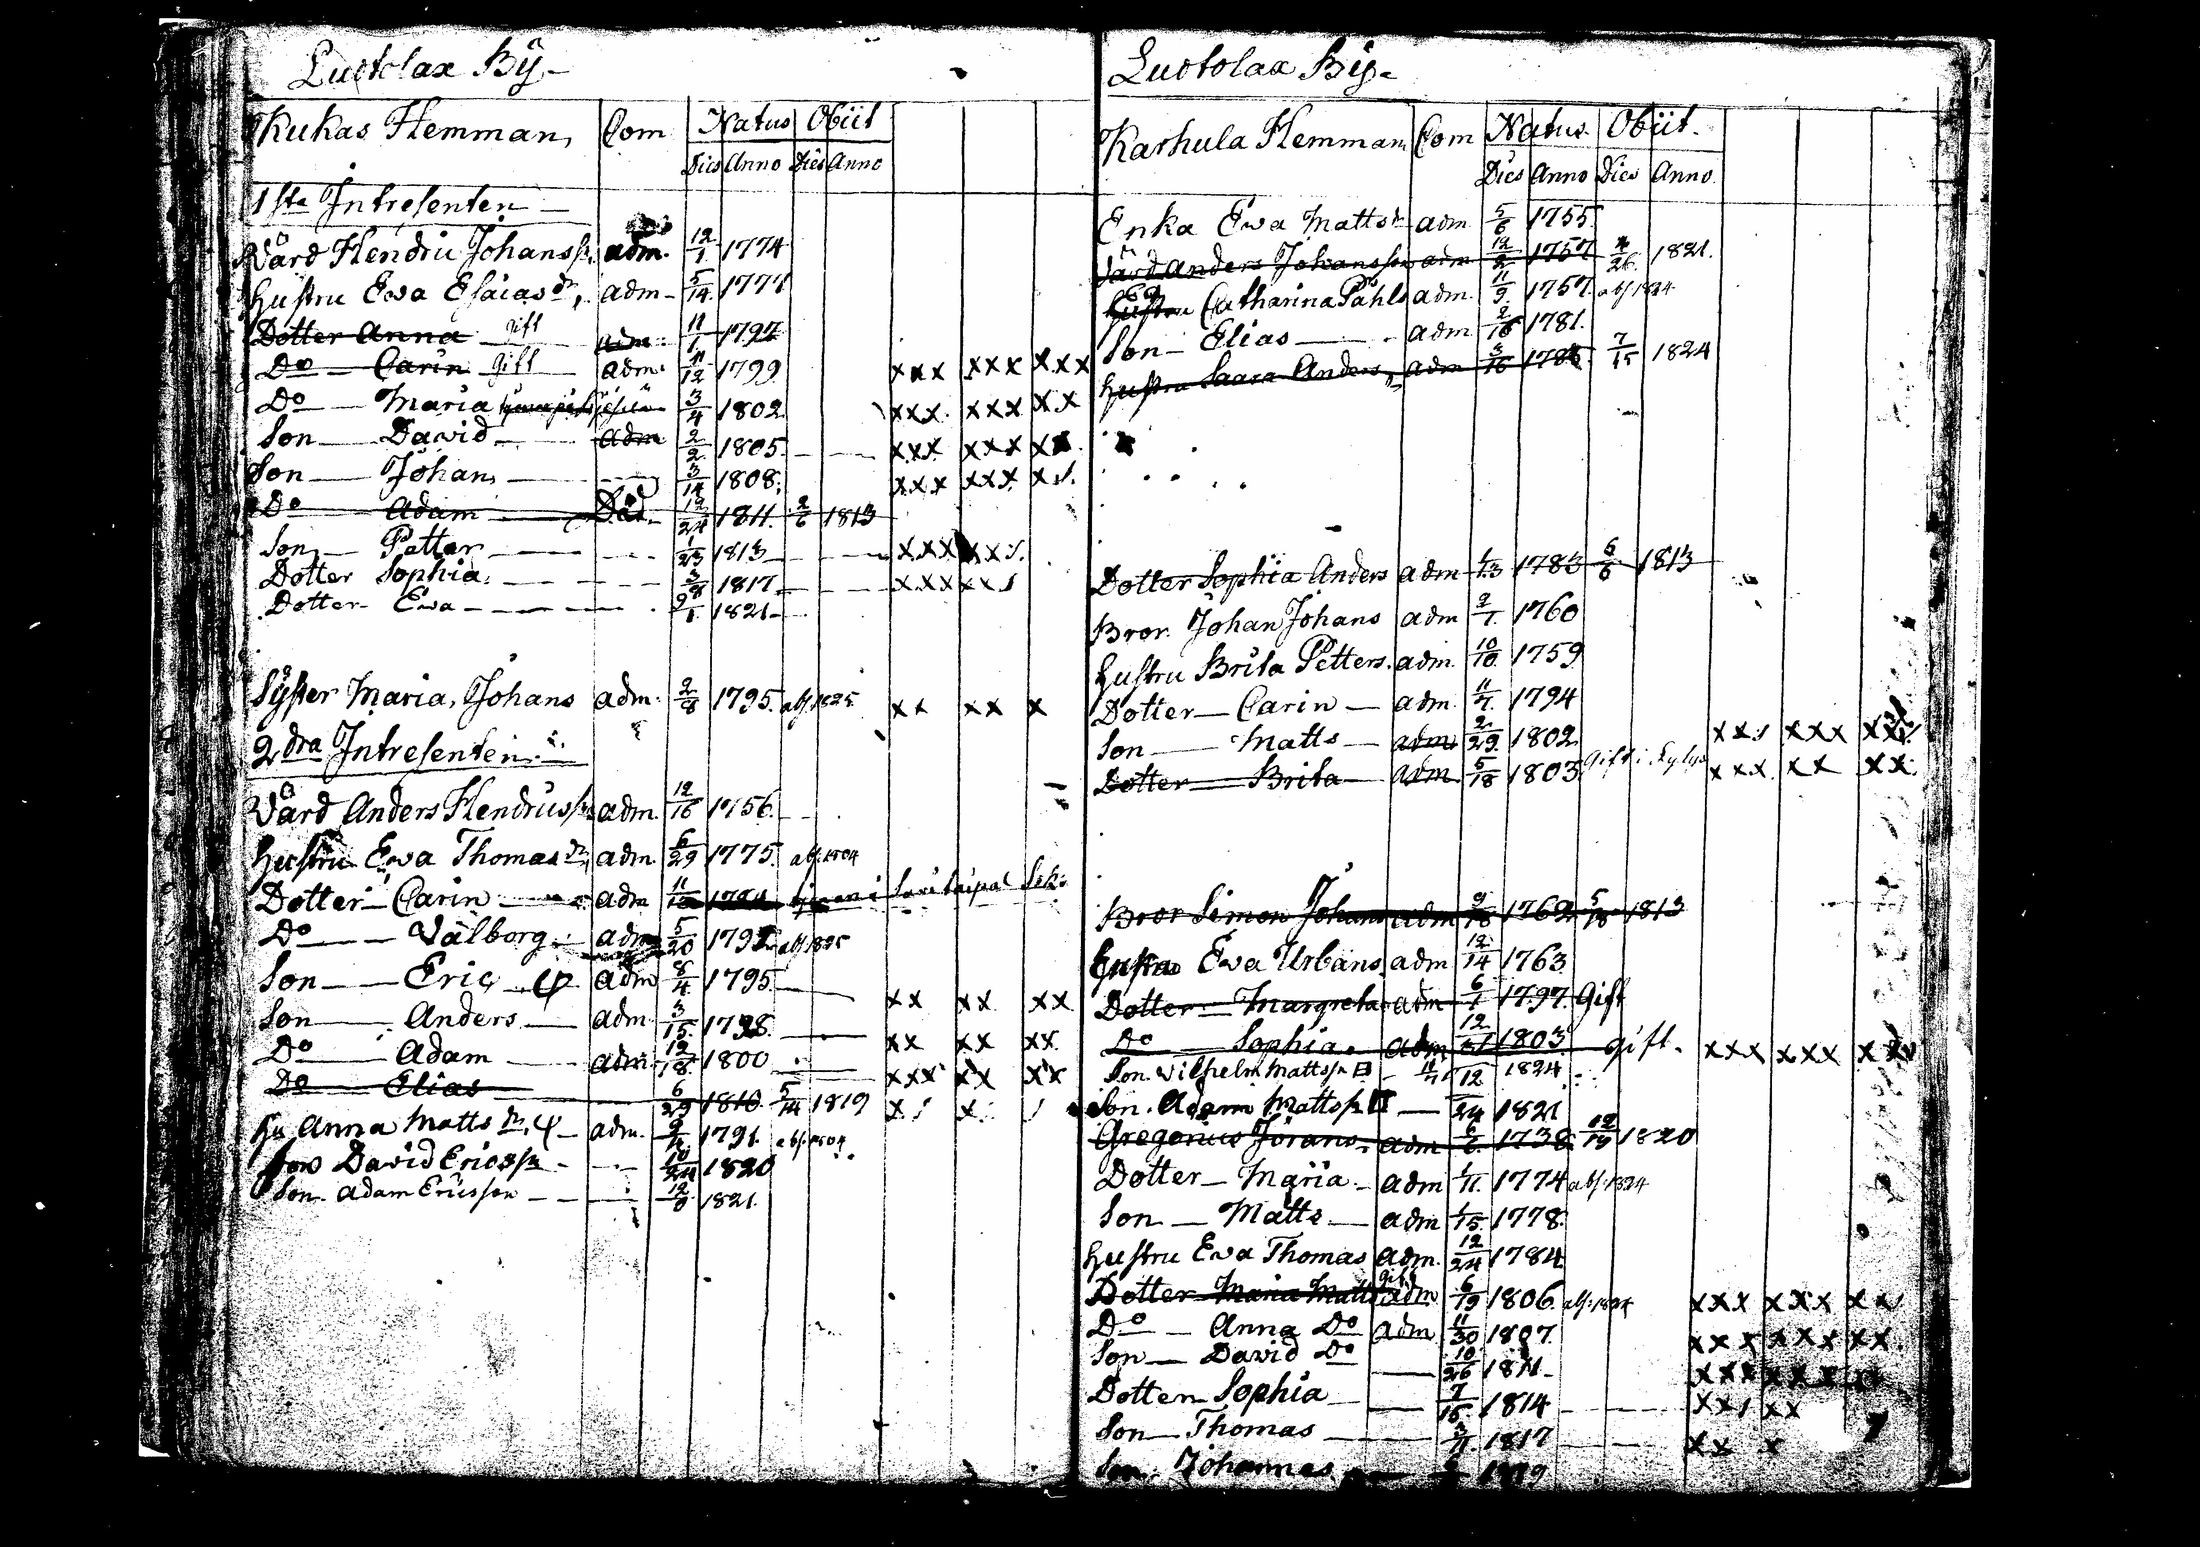 Luotolax Bÿ
Kukas Hemman, Com Natus Obiit
Dies Anno Dies Anno
1sta Intresenten
Värd Hendric Johanss: adm. 12/1 1774
Hustru Ewa Esaias dr, adm 5/14 1777
Dotter Anna gift adm 11/1 1797
Do Carin gift adm. 11/12 1799 xxx xxx xxx
Do Maria 3/4 1802 xxx xxx xx
Son David adm 2/2 1805 xxx xxx xx
Son Johan 3/14 1808 xxx xxx x
Do Adam Död 12/24 1811 2/6 1813
Son Petter 1/23 1813 xxx xx
Dotter Sophia 3/8 1817 xxx xx
Dotter Ewa 9/1 1821
Syster Maria Johans adm. 2/8 1795 abs. 1825 xx xx x
2dra Intresenten
Värd Anders Hendricss: adm. 12/16 1756
Hustru Ewa Thomas dr adm. 6/29 1775 abs. 1804
Dotter Carin adm 11/10 1794 Savitaipal
Do Wälborg adm 5/20 1792 abs 1825
Son Eric adm 8/4 1795 xx xx xx
Son Anders adm. 3/15 1798 xx xx xx
Do Adam adm 12/18 1800 xxx xx xx
Do Elias 6/29 1810 5/14 1819 x x
Hu Anna Matts dr adm. 1791 abs. 1804
Son David Ericss 10/24 1820
Son Adam Ericsson 12/9 1821
Luotolax Bÿ
Karhula Hemman Com Natus Obiit
Dies Anno Dies Anno
Enka Ewa Matts dr adm 5/6 1755
Värd Anders Johansson adm 12/2 1757 4/26 1821
Catharina Påhls adm. 11/9 1757 abs 1824
Son Elias adm 2/16 1781
Hustru Saara Anders adm 3/16 7/15 1824
Dotter Sophia Anders adm 1/13 1783 1813
Bror Johan Johans adm 9/7 1760
Hustru Brita Petters adm. 10/10 1759
Dotter Carin adm. 11/7 1794
Son Matts adm 2/29 1802 xx xxx xx
Dotter Brita adm 5/18 1803 Gift i xxx xx xx
Bror Simon Johans adm 9/18 1762 5/18 1813
Enka Ewa Urbans adm 12/14 1763
Dotter Margreta adm 6/1 1797 Gift
Do Sophia adm 12/21 1803 gift xxx xxx x
Son Wilhelm Mattss 11/12 1824
Son Adam Mattss 24 1821
Gregorius Jörans adm 6/6 1738 12/19 1820
Dotter Maria adm 1/11 1774 abs. 1824
Son Matts adm 1/15 1778
Hustru Ewa Thomas adm. 12/24 1784
Dotter Maria Matts gift adm 6/19 1806 abs. 1824 xxx xxx xx
Do Anna Do adm 11/30 1807 xxx xxx xx
Son David Do 10/26 1811 xxx xxx
Dotter Sophia 7/15 1814 xx xx
Son Thomas 3/11 1817 xx x
Son Johannes 1819